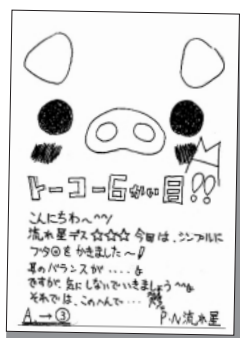 トーコー6かい目!!
こんにちわ〜^^ノ
流れ星デス☆☆☆ 今回は、シンプルに
ブタ@をかきました〜!
耳のバランスが....
ですが、気にしないでいきましょう^^
それでは、このへんで...
A→③ P.N流れ星